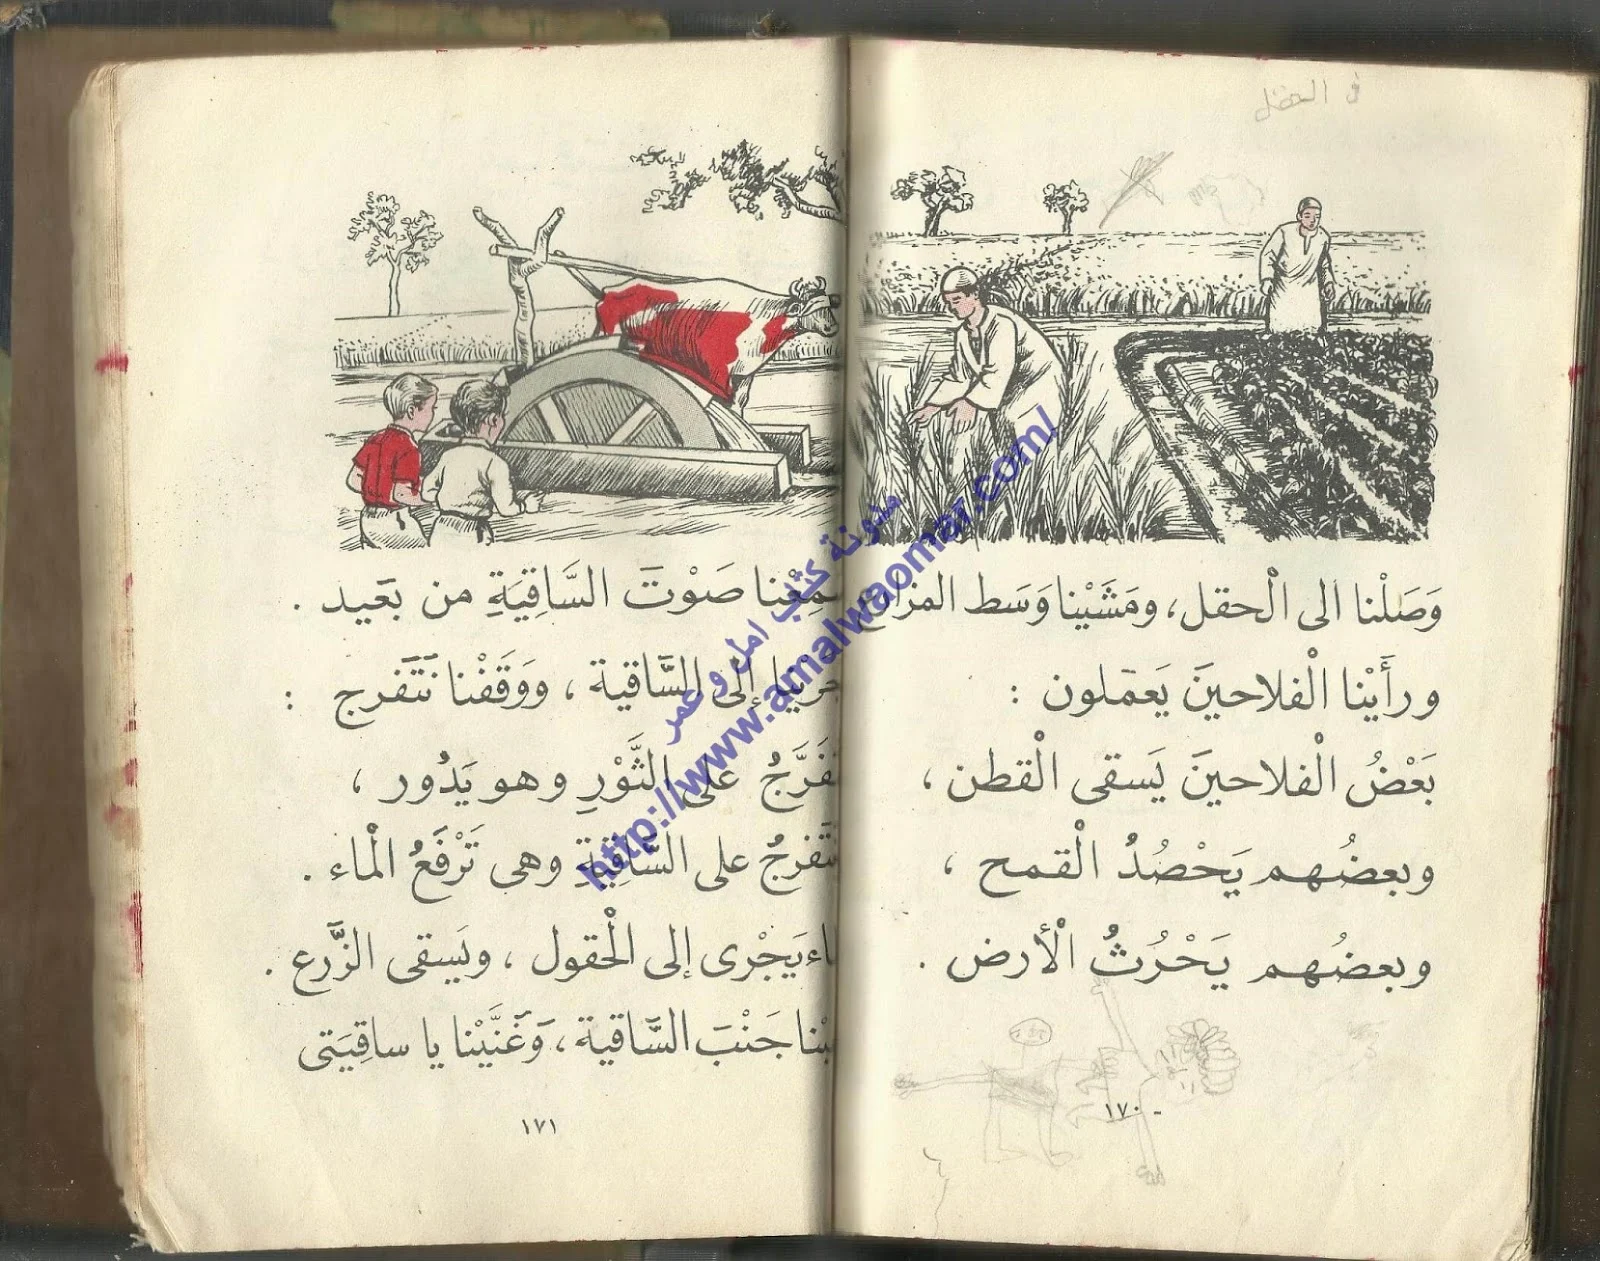 فى الحقل
وَصَلْنا الى الْحقل، ومَشَيْنا وَسَط المزارع
ورأَيْنا الْفلاحينَ يَعمَلون :
بَعْضُ الْفلاحينَ يَسقى الْقطن ،
وبعضُهم يَحْصُدُ الْقمح ،
وبعضُهم يَحْرُثُ الْأرض .
١٧٠ -
سَمِعْنا صَوْتَ السَّاقِيَةِ من بَعيد .
جرَيْنا إلى السَّاقية ، ووَقَفْنا نَتَفرج :
نَتَفَرَّجُ على الثَّوْرِ وهو يَدُور ،
نَتَفرجُ على السَّاقِيَةِ وهى تَرْفَعُ الْماء .
يَجْرى إلى الْحقول ، ويَسقى الزَّرع .
جَنْبَ السَّاقية ، وَغَنَّيْنا يا ساقِيَتى
١٧١
مدونة كتب امل و عمر
http://www.amalwaomar.com/